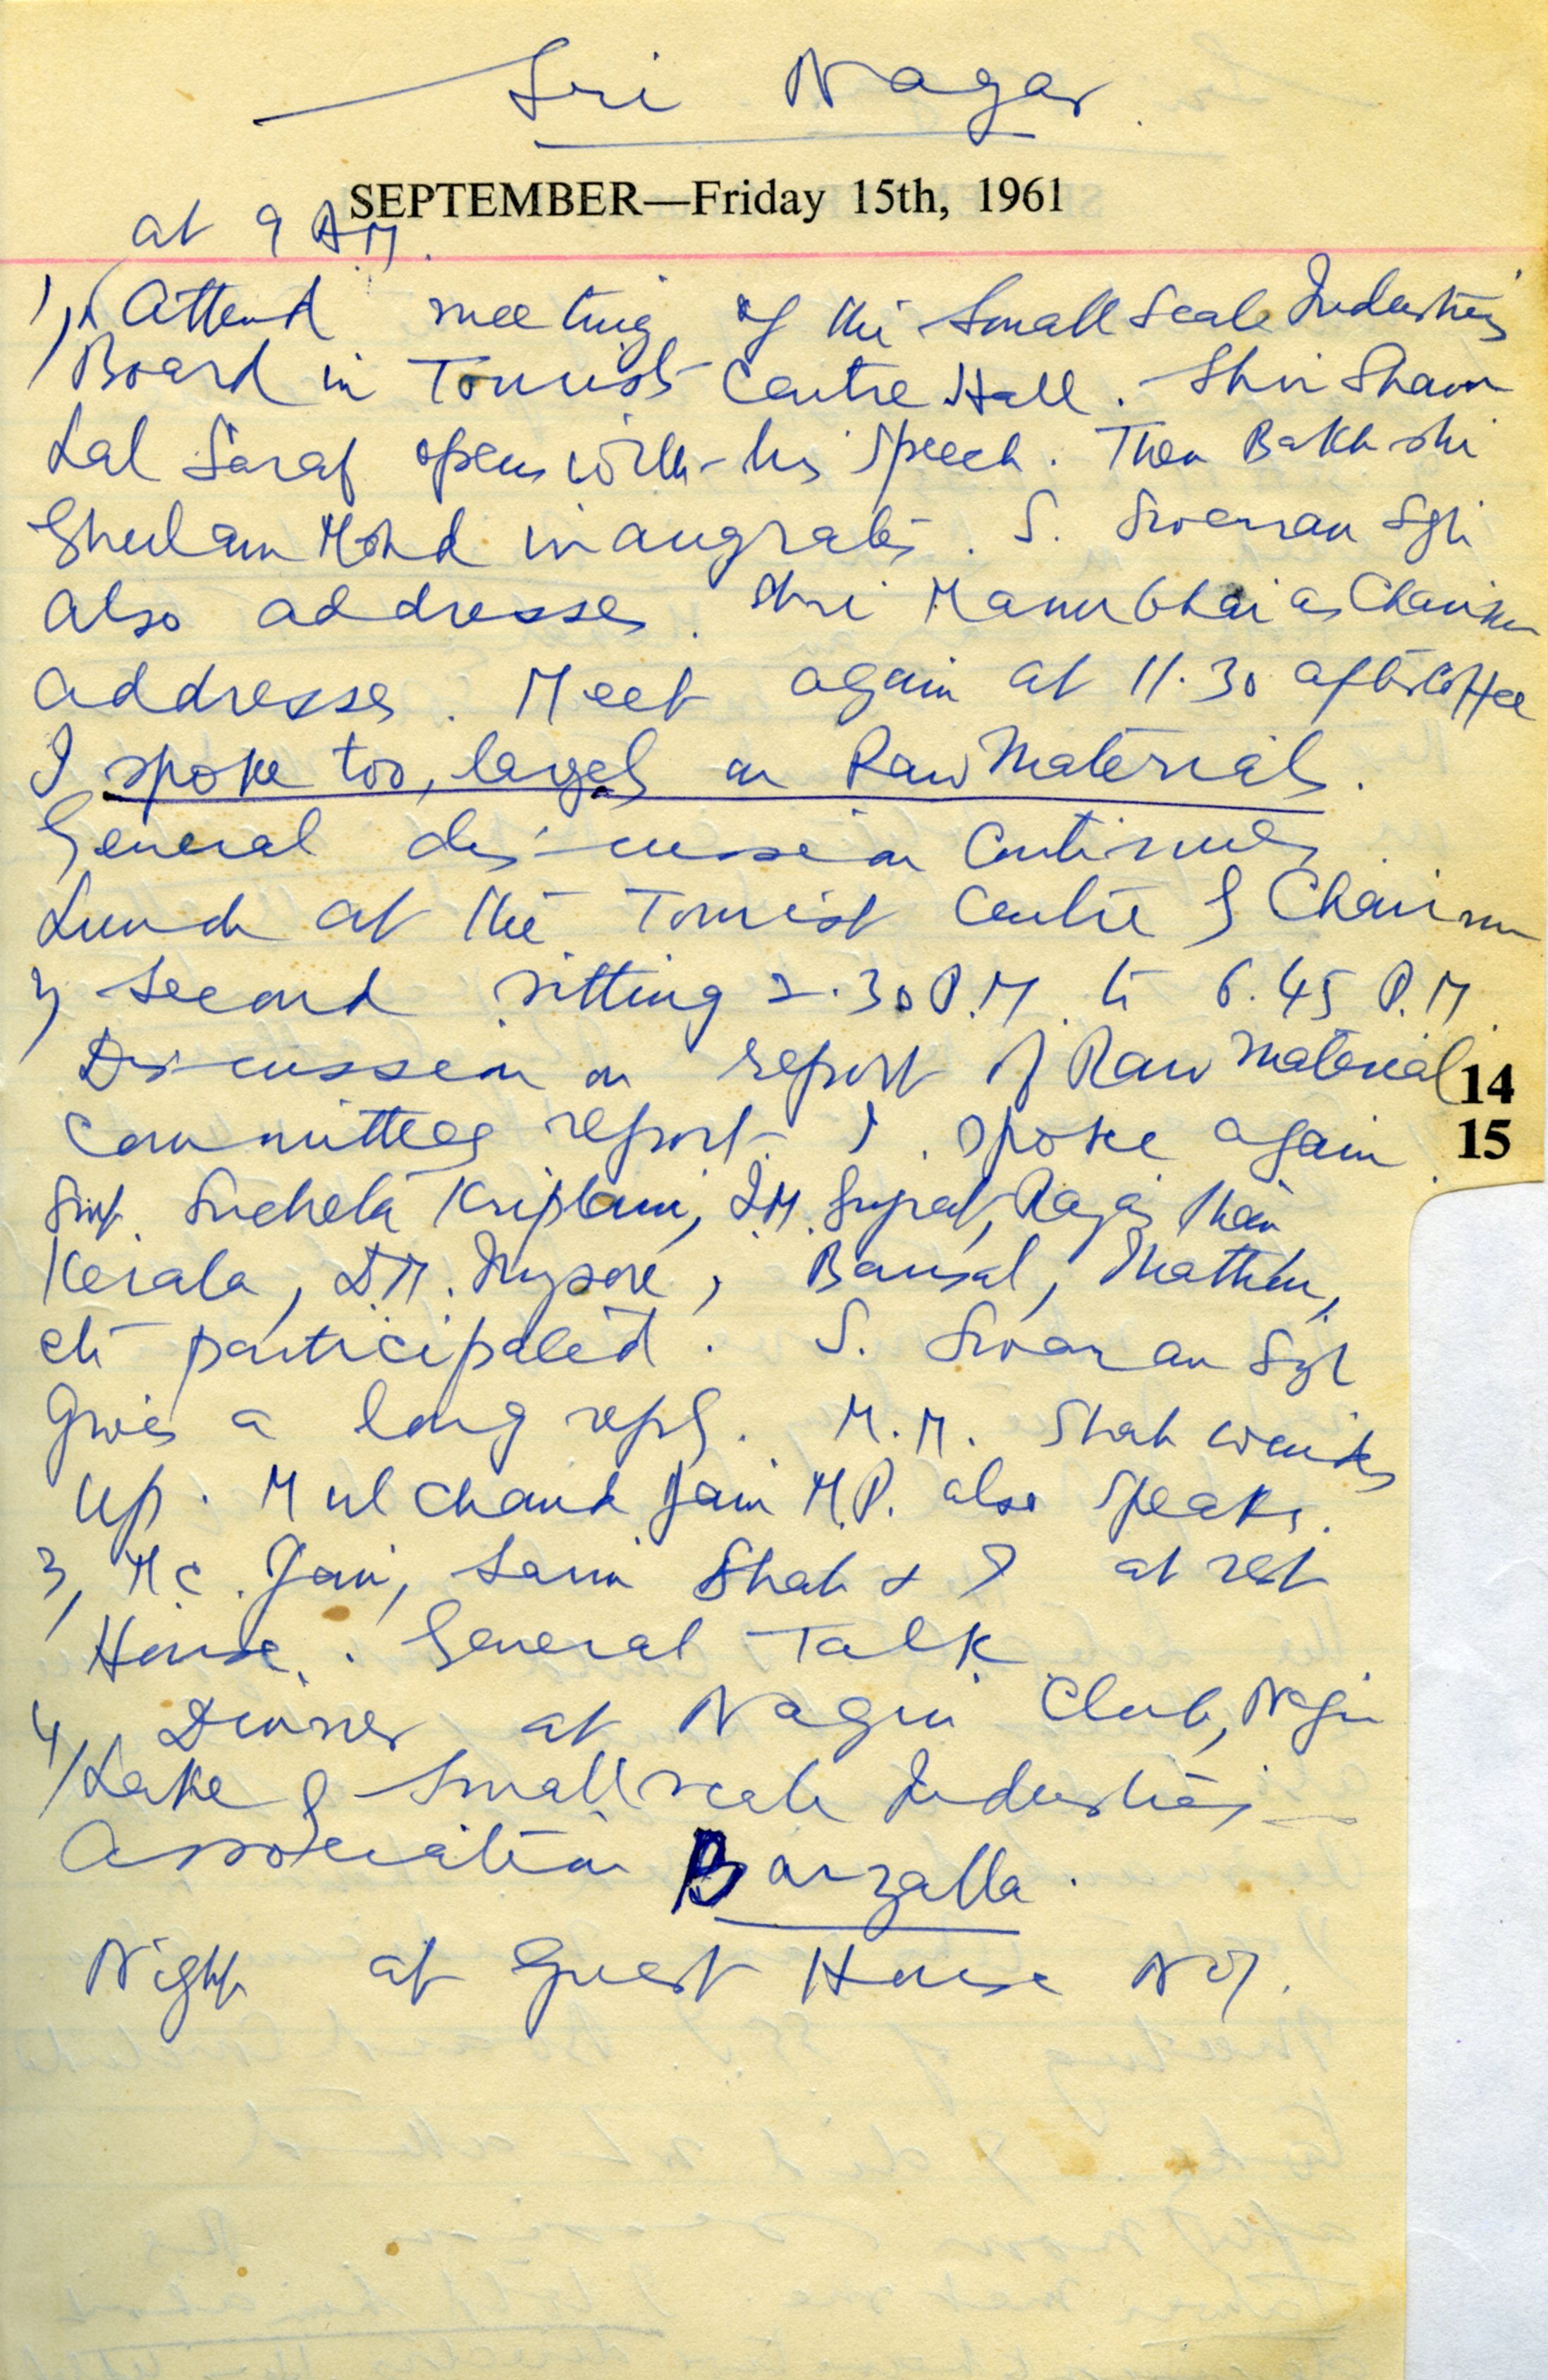 Sri Nagar
SEPTEMBER—Friday 15th, 1961
at 9 A.M.
1, Attend meeting of the Small Scale Industries
Board in Tourist Centre Hall. Shri Sham
Lal Saraf opens with his speech. Then Bakhshi
Ghulam Mohd inaugrates. S. Swarran Sgh
also addresses. Shri Manubhai as Chairman
addresses. Meet again at 11.30 after Coffee
I spoke too, largely on Raw Materials.
General discussion continues.
Lunch at the Tourist Centre by Chairman
2, Second sitting 2.30 P.M. to 6.45 P.M.
Discussion on report of Raw Material
14
Committees report. I spoke again
15
Smt. Sucheta Kriplani, I.M. Gujrat, Rajasthan
Kerala, D.M. Mysore, Bansal, Mathew,
etc participated. S. Swaran Sgh
gives a long reply. M.M. Shah winds
up. Mul Chand Jain M.P. also speaks.
3, M.C. Jain, Shah & I at rest
House. General Talk
4, Dinner at Nagin Club, Nagin
Lake by Small scale Industries
Association Barzalla.
Night at Guest House No 7.